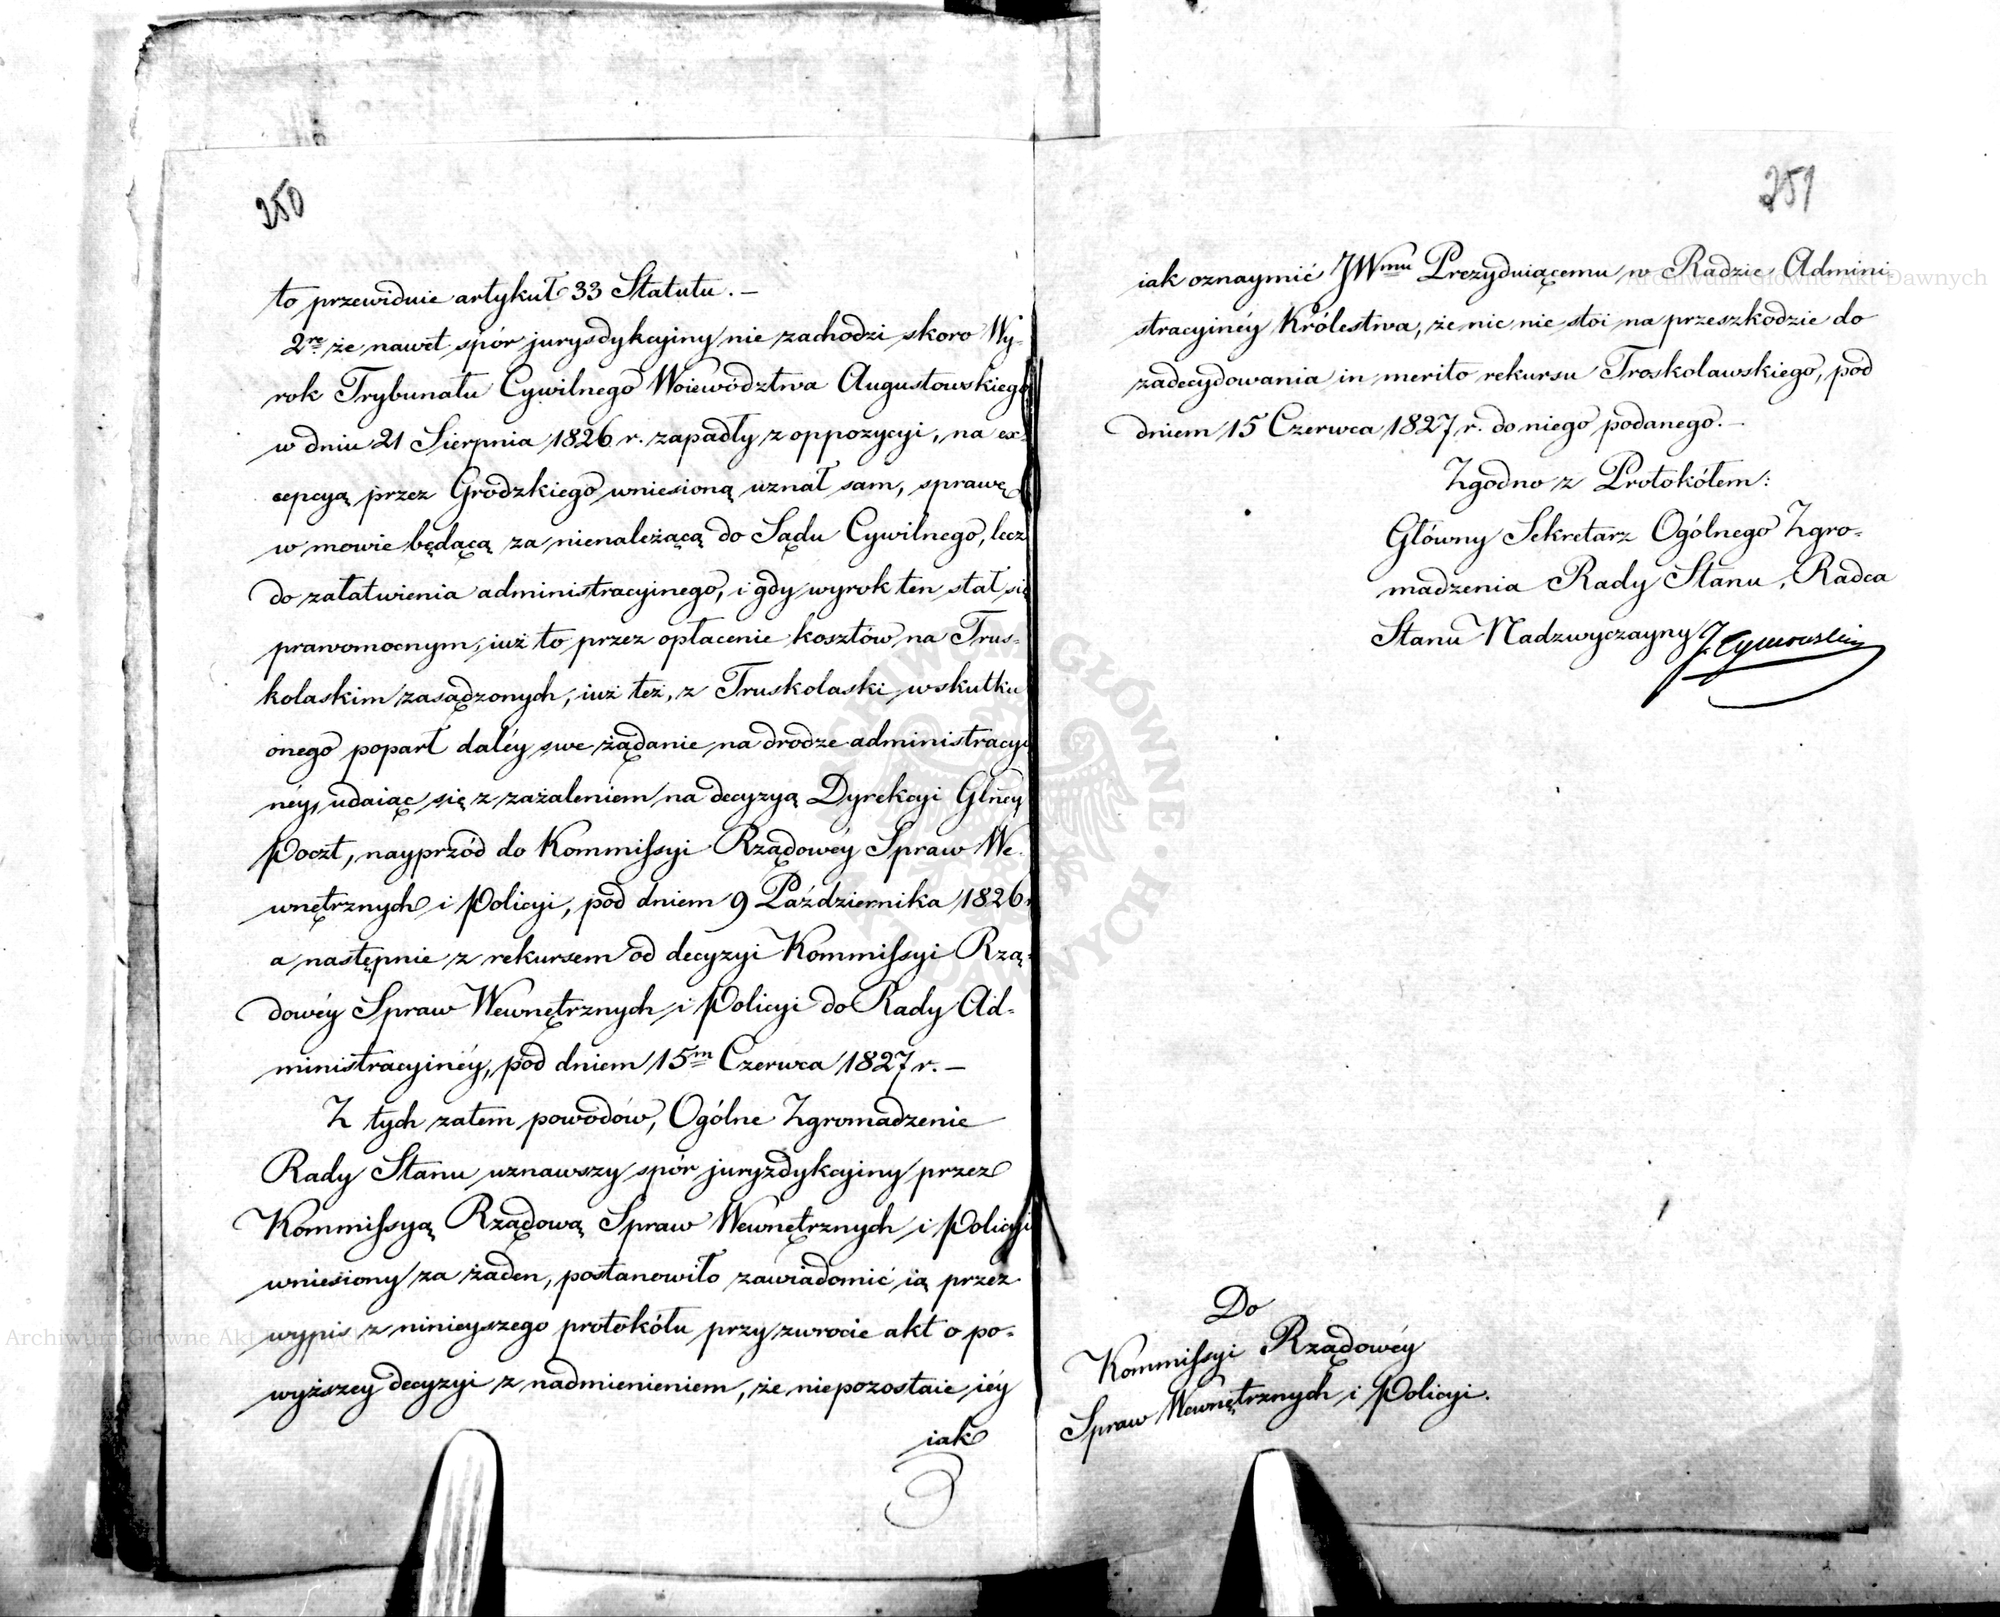 250
to przewiduie artykuł 33 Statutu. —
2re że nawet spór jurysdykcyiny nie zachodzi skoro Wy-
rok Trybunału Cywilnego Woiewództwa Augustowskiego
w dniu 21 Sierpnia 1826 r. zapadły z oppozycyi, na ex-
cepcyą przez Grodzkiego wniesioną uznał sam, sprawę
w mowie będącą za nienależącą do Sądu Cywilnego, lecz
do załatwienia administracyinego, i gdy wyrok ten stał się
prawomocnym, iuż to przez opłacenie kosztów na Trus-
kolaskim zasądzonych, iuż też, z Truskolaski w skutku
onego poparł daléy swe żądanie na drodze administracyi-
néy, udaiąc się z zażaleniem na decyzyą Dyrekcyi Głney
Poczt, nayprzód do Kommissyi Rządowéy Spraw We-
wnętrznych i Policyi, pod dniem 9 Października 1826 r.
a następnie z rekursem od decyzyi Kommissyi Rzą-
dowéy Spraw Wewnętrznych i Policyi do Rady Ad-
ministracyinéy, pod dniem 15m Czerwca 1827 r. —
Z tych zatem powodów, Ogólne Zgromadzenie
Rady Stanu uznawszy spór juryzdykcyiny przez
Kommissyą Rządową Spraw Wewnętrznych i Policyi
wniesiony za żaden, postanowiło zawiadomić ią przez
wypis z ninieyszego protokółu przy zwrocie akt o po-
wyższey decyzyi z nadmienieniem, że niepozostaie iéy
iak
251
iak oznaymić JWmu Prezyduiącemu w Radzie Admini-
stracyinéy Królestwa, że nic nie stoi na przeszkodzie do
zadecydowania in merito rekursu Troskolawskiego, pod
dniem 15 Czerwca 1827 r. do niego podanego. —
Zgodno z Protokółem:
Główny Sekretarz Ogólnego Zgro-
madzenia Rady Stanu, Radca
Stanu Nadzwyczayny
Do
Kommissyi Rządowéy
Spraw Wewnętrznych i Policyi.
Archiwum Główne Akt Dawnych
Archiwum Główne Akt Dawnych
ARCHIWUM GŁÓWNE AKT DAWNYCH